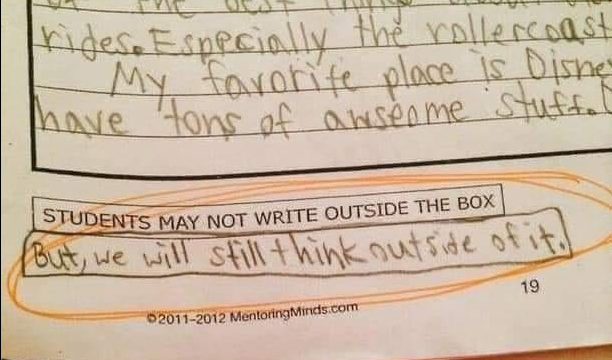 the best things about
rides. Especially the rollercoast
My favorite place is Disne
have tons of awseome stuff.
STUDENTS MAY NOT WRITE OUTSIDE THE BOX
But, we will still think outside of it.
19
©2011-2012 MentoringMinds.com